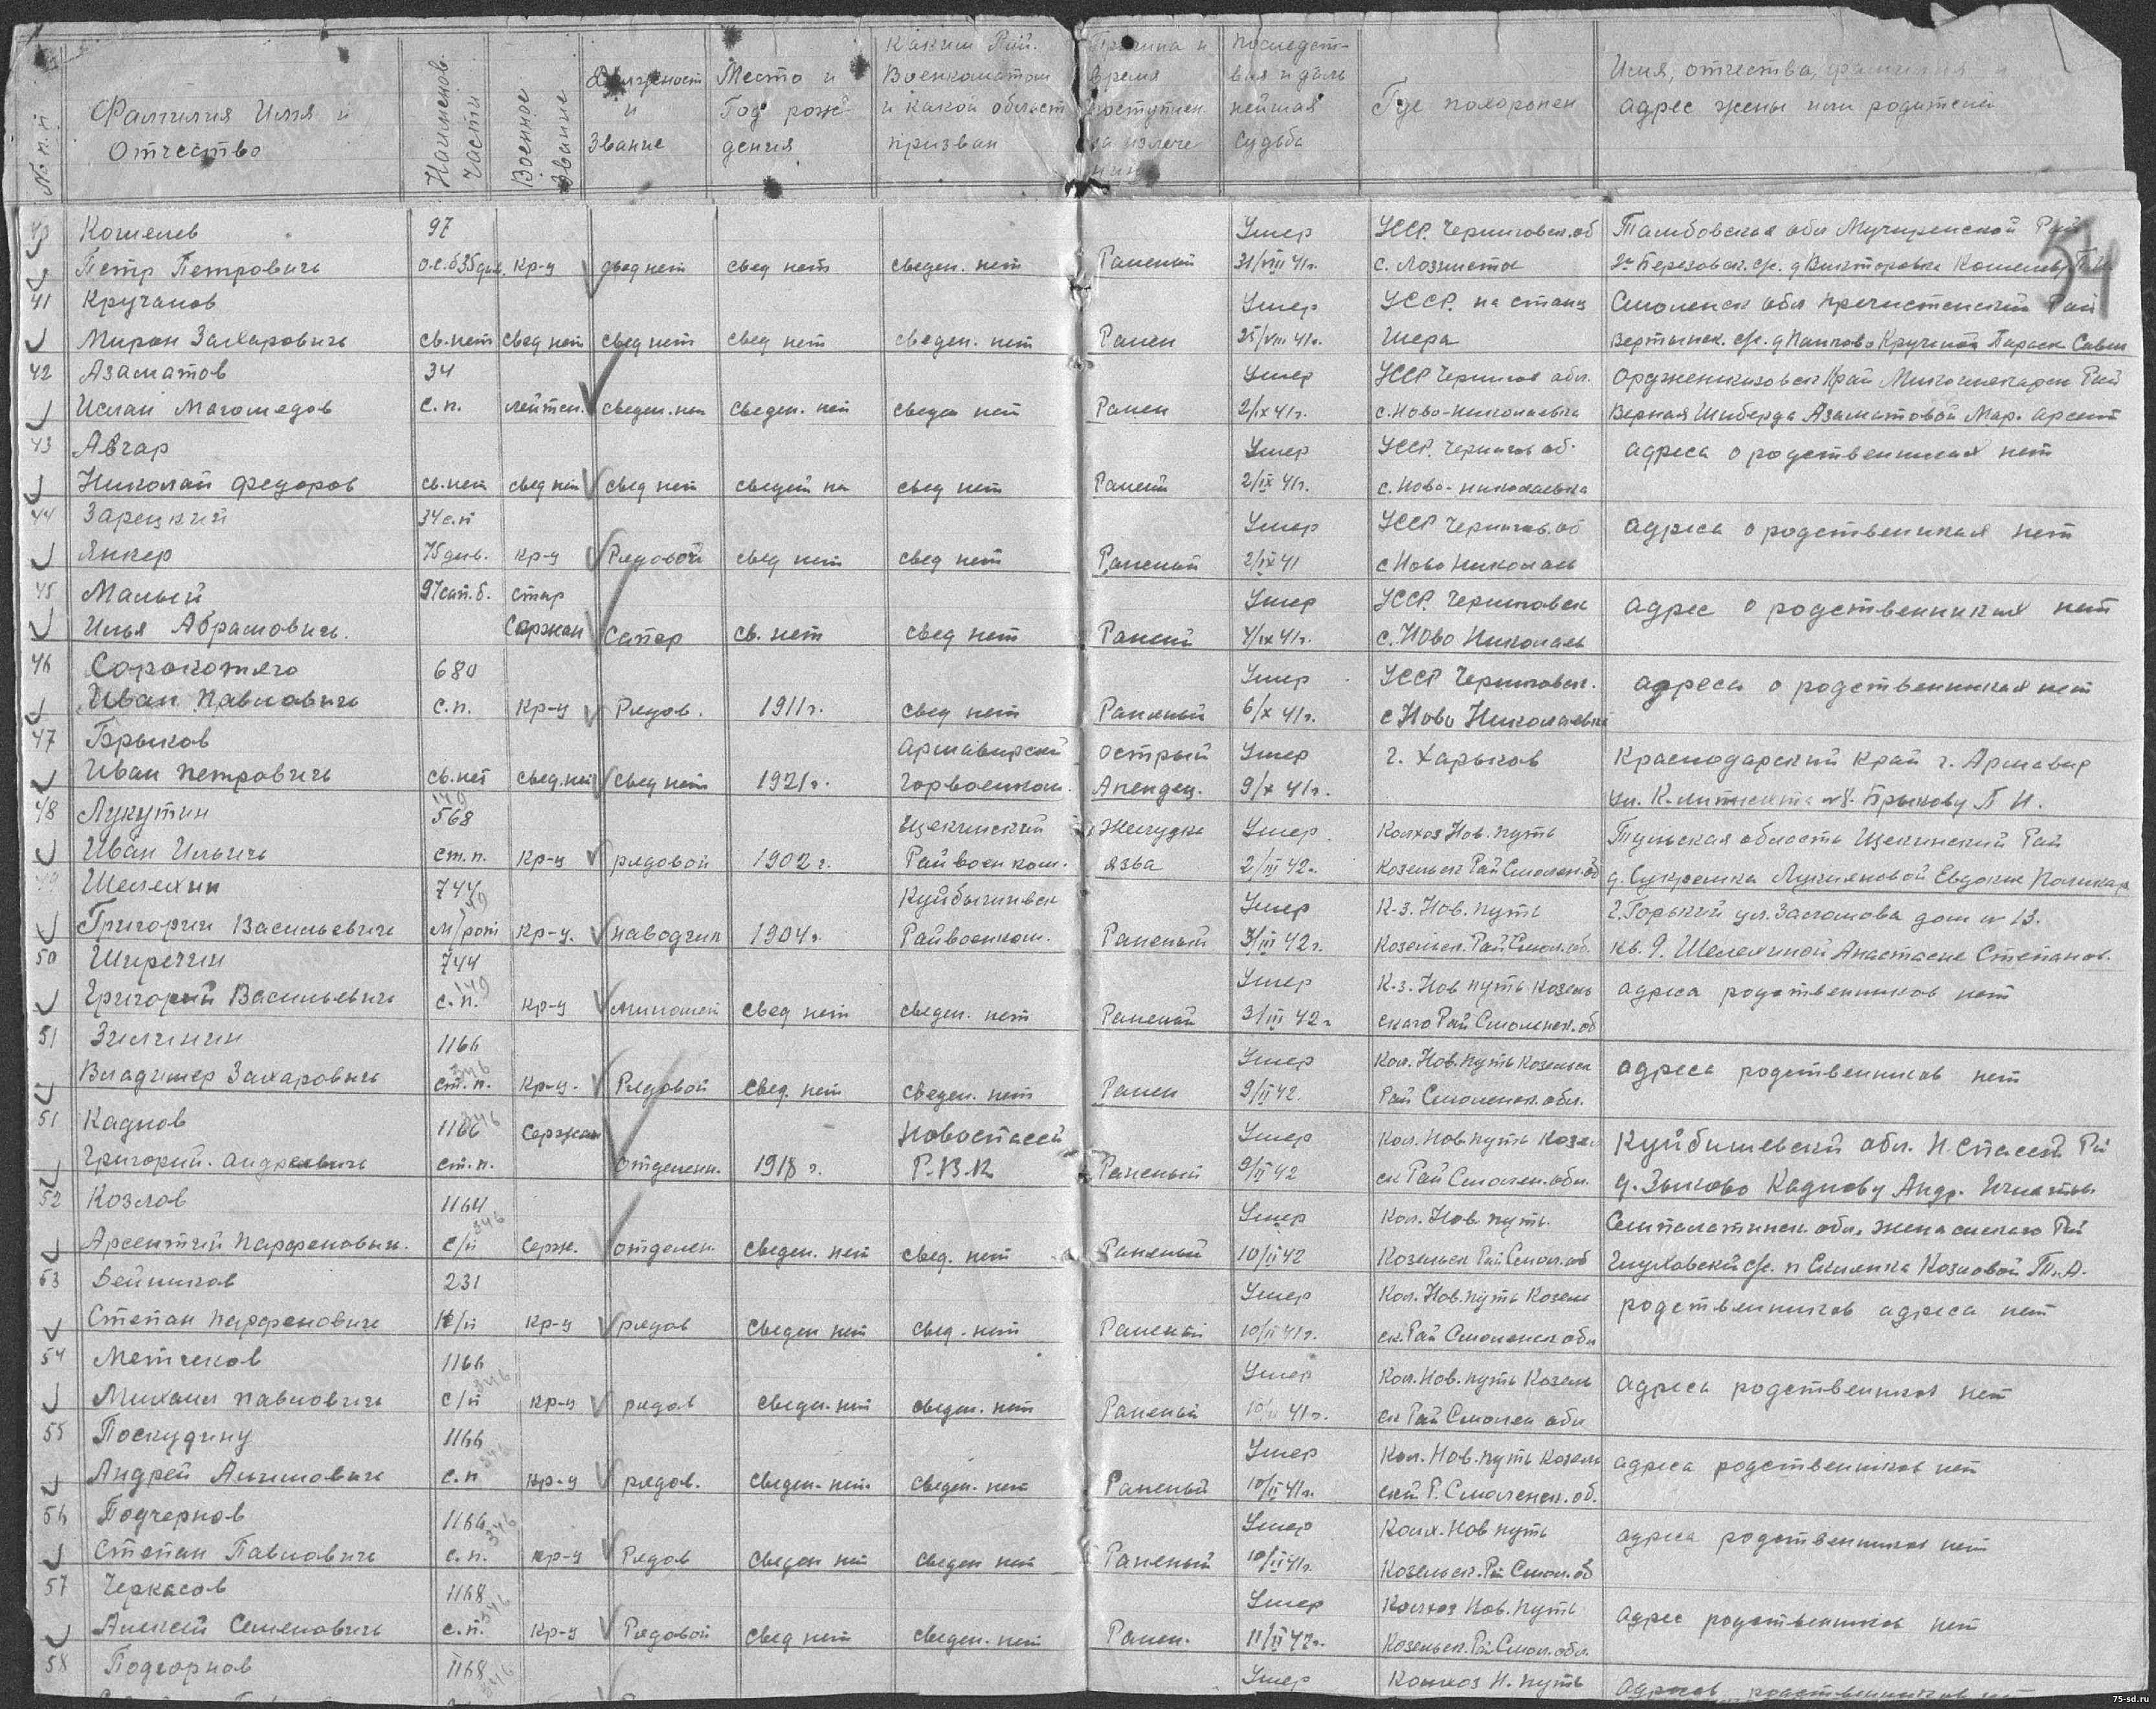 № п.п. Фамилия Имя и Отчество Наименов части Военное звание Должност и Звание Место и Год рож дения Каким Рай. Военкоматом и какой област призван Причина и время поступлен на излече ния Последст- вия и даль нейшая судьба Где похоронен Имя, отчества, фамилия адрес жены или родителей
54
Кошелев 97 Умер УССР. Черниговск. об Тамбовская обл Мучкапской Рай
Петр Петрович О.с.б 35 див. Кр-ц свед нет свед нет сведен. нет Раненый 31/VIII 41г. с. Лозниста Березовск. с/с. д Викторовка Кошелеву
41 Кручанов Умер УССР. на станц Смоленск обл Пречистенский Рай
Мирон Захарович св. нет свед нет свед нет свед нет сведен. нет Ранен 25/VIII 41г. с/с. д
42 Азаматов 34 Умер УССР Чернигов обл. Орджоникизовск Край Рай
Ислан Магомедов с.п. лейтен. сведен. нет сведен. нет сведен нет Ранен 2/IX 41г. с. Ново-Николаевка Азаматовой Мар.
43 Авгар Умер УССР. Чернигов об. адреса о родственниках нет
Николай Федоров св. нет свед нет свед нет сведен не свед нет Ранен 2/IX 41г. с. Ново-Николаевка
44 Зарецкий 34 с.п Умер УССР Чернигов. об адреса о родственниках нет
Янкер 75 див. кр-ц Рядовой свед нет свед нет Раненый 2/IX 41 с Ново Николаев
45 Малый 97 сап. б. стар Умер УССР. Черниговск адрес о родственниках нет
Илья Абрамович. Сержан Сапер св. нет свед нет Ранен 4/IX 41г. с. Ново Николаев
46 Сорокотяго 680 Умер УССР Черниговск. адреса о родственниках нет
Иван Павлович с.п. кр-ц Рядов. 1911г. свед нет Раненый 6/X 41г. с Ново Николаевка
47 Брыков Армавирский острый Умер г. Харьков Краснодарский Край г. Армавир
Иван Петрович св. нет свед. нет свед нет 1921г. Горвоенком. Апендец. 9/X 41г. ул. К. Брыкову П И.
48 Лукутин 149 568 Щекинский Желудка Умер. Колхоз Нов. путь Тульская область Щекинский Рай
Иван Ильич ст. п. кр-ц рядовой 1902г. Райвоенком. язва 2/III 42г. Козельск Рай Смоленск. об д. Сукромка Евдокие
49 Шелехин 744 149 Куйбышевск Умер К-з. Нов. путь г. Горький ул. Заломова дом № 13.
Григорий Васильевич м/рот кр-ц. наводчик 1904г. Райвоенком. Раненый 3/III 42г. Козельск. Рай Смол. об. кв. 9. Шелехиной Анастасие Степанов.
50 Ширечин 744 149 Умер К-з. Нов путь Козель адреса родственников нет
Григорий Васильевич с. п. кр-ц миномет свед нет сведен. нет Раненый 3/III 42г ского Рай Смоленск. об
51 Зимнин 1166 346 Умер Кол. Нов. путь Козельск адреса родственников нет
Владимер Захарович ст. п. кр-ц. Рядовой свед. нет сведен. нет Ранен 9/II 42. Рай Смоленск. обл.
51 Каднов 1166 346 Сержан Новоспасск Умер Кол. Нов. путь Козел Куйбишевский обл. Н. Спасск Рай
Григорий. Андреевич ст. п. отделенн. 1918 г. Р.В.К Раненый 9/II 42 ск Рай Смолен. обл. д. Зыково Каднову Андр. Игнатьев
52 Козлов 1164 346 Умер Кол. Нов. путь. Семипалатинск. обл. Рай
Арсентий Парфенович. с/п Серж. отделен. сведен. нет свед. нет Раненый 10/II 42 Козельск Рай Смол. об с/с. п Козловой Т. А.
53 Вейников 231 Умер Кол. Нов. путь Козель родственников адреса нет
Степан Парфенович с/п кр-ц рядов сведен нет свед. нет Раненый 10/II 41г. ск. Рай Смоленск обл
54 Метчеков 1166 346 Умер Кол. Нов. путь Козель адреса родственников нет
Михаил Павлович с/п кр-ц рядов сведен. нет сведен. нет Раненый 10/II 41г. ск Рай Смолен обл
55 Поскудину 1166 346 Умер Кол. Нов. путь Козель адреса родственников нет
Андрей Акимович с. п кр-ц рядов. сведен. нет. сведен. нет Раненый 10/II 41г. ский Р. Смоленск. об.
56 Подчернов 1166 346 Умер Колх. Нов путь адреса родственников нет
Степан Павлович с. п. кр-ц Рядов сведен нет сведен нет Раненый 10/II 41г. Козельск. Рай Смол. об
57 Черкасов 1168 346 Умер Колхоз Нов. путь адрес родственников нет
Алексей Семенович с. п. кр-ц Рядовой свед нет сведен. нет Ранен. 11/II 42г. Козельск. Рай Смол. обл.
58 Подгорнов 1168 346 Умер Колхоз Н. путь Адресов родственников нет
75-sd.ru